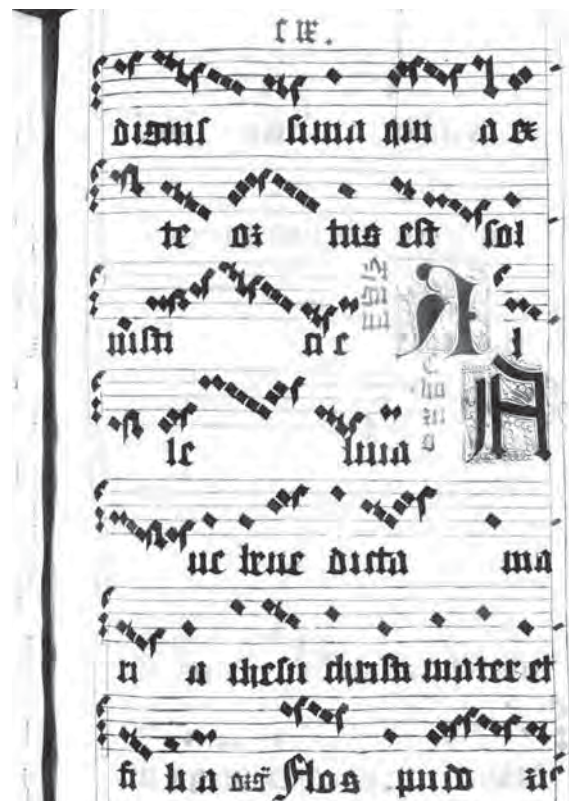 c ix.
dignis sima qui a ex
te or tus est sol
iusti ci e A l
le luia A
ue bene dicta ma
ri a ihesu christi mater et
fi li a Flos pudi